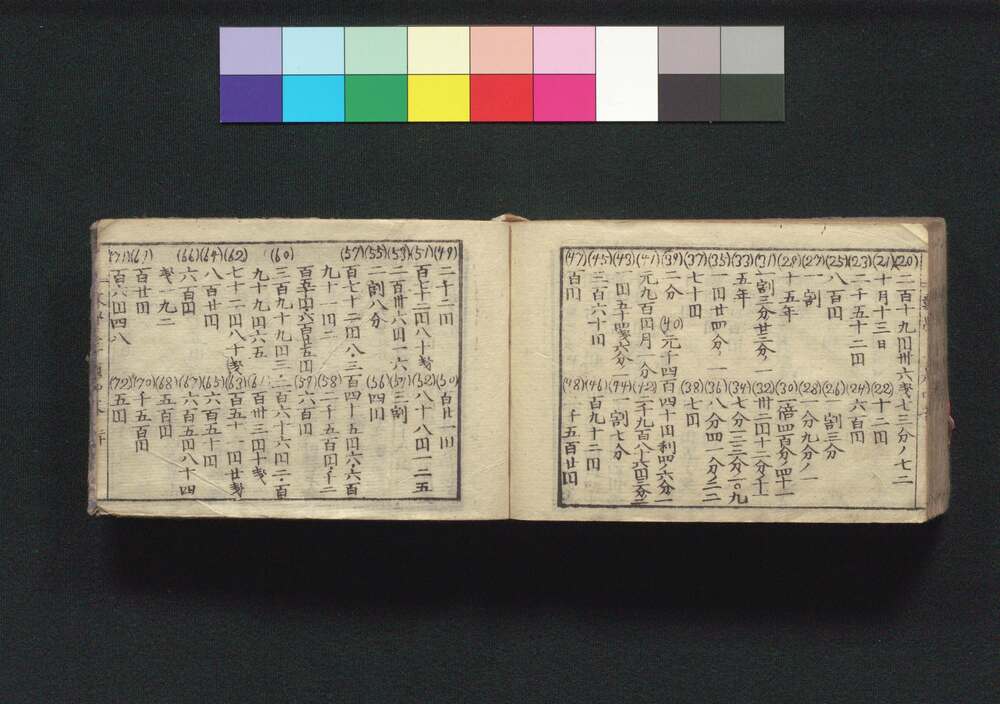 (20) 二百十九円卅六銭七三分ノ七二
(21) 十月十三日
(22) 十二円
(23) 一千五十二円
(24) 六百円
(25) 八百円
(26) 割三分
(27) 一割
(28) 一分九分ノ一
(29) 十五年
(30) 一倍四百分ノ四十一
(31) 一割三分廿三分ノ一
(32) 卅二円十二分ノ十一
(33) 五年
(34) 七分一三三分ノ一〇九
(35) 一円廿四分ノ一
(36) 八分四一分ノ三二
(37) 七十円
(38) 七円
(39) 二分
(40) 元千四百四十円利四ノ六分ノ一
(41) 元九百円月一分
(42) 二千九百八十六円
(43) 一円五十四銭六分ノ一
(44) 一割七分
(45) 三百六十円
(46) 百九十二円
(47) 百円
(48) 千五百廿円
(49) 二千二円
(50) 百廿一円
(51) 百七十二円八十銭
(52) 八十八円一二五
(53) 二百卅六円一六
(54) 三割
(55) 二割八分
(56) 四円
(57) 百七十二円八三百四十五円六・六百九十一円二
(58) 二千五百円・千二百五十円・六百廿五円
(59) 六百円
(60) 三百九十九円三・二百六十六円二・百九十九円六五
(61) 百卅三円十銭
(62) 七十二円八十銭
(63) 百五十一円廿銭
(64) 八百廿円
(65) 六百五十円
(66) 六百円
(67) 六百五円八十四銭一九二
(68) 五百円
(69) 百廿円
(70) 千五百円
(71) 百八円四八
(72) 五円